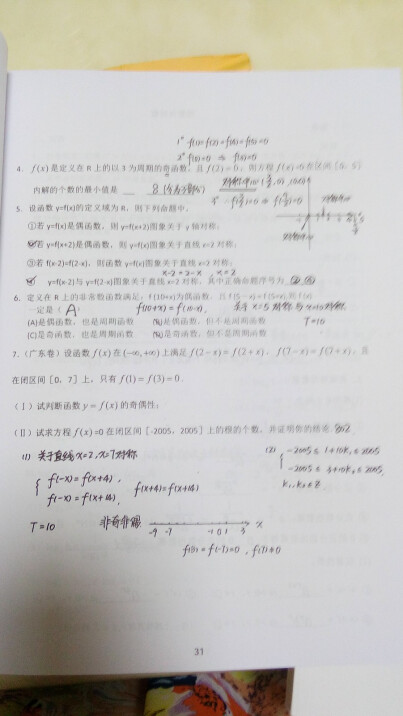 1° f(1)=f(2)=f(4)=f(5)=0
2° f(0)=0 ⇒ f(3)=0
4. f(x)是定义在R上的以3为周期的奇函数，且f(2)=0，则方程f(x)=0在区间
内解的个数的最小值是
5. 设函数y=f(x)的定义域为R，则下列命题中，
①若y=f(x)是偶函数，则y=f(x+2)图象关于y轴对称；
②若y=f(x+2)是偶函数，则y=f(x)图象关于直线x=2对称；
③若f(x-2)=f(2-x)，则函数y=f(x)图象关于直线x=2对称；
④y=f(x-2)与y=f(2-x)图象关于直线x=2对称，其中正确命题序号为 ②④
x-2=2-x x=2
6. 定义在R上的非常数函数满足：f(10+x)为偶函数，且f(5-x)=f(5+x)，则f(x)
一定是（A） f(10+x)=f(10-x), 关于x=5对称
(A)是偶函数，也是周期函数 (B)是偶函数，但不是周期函数 T=10
(C)是奇函数，也是周期函数 (D)是奇函数，但不是周期函数
7.（广东卷）设函数f(x)在(-∞,+∞)上满足f(2-x)=f(2+x)，f(7-x)=f(7+x)，且
在闭区间［0，7］上，只有f(1)=f(3)=0．
（Ⅰ）试判断函数y=f(x)的奇偶性；
（Ⅱ）试求方程f(x)=0在闭区间［-2005，2005］上的根的个数，并证明你的结论. 802
(1) 关于直线x=2, x=7对称
f(-x)=f(x+4),
f(-x)=f(x+14),
f(x+4)=f(x+14)
(2) -2005≤1+10k₁≤2005
-2005≤3+10k₂≤2005
k₁,k₂∈Z
T=10 非奇非偶
-9 -7 -1 0 1 3 x
f(3)=f(-7)=0, f(7)≠0
31